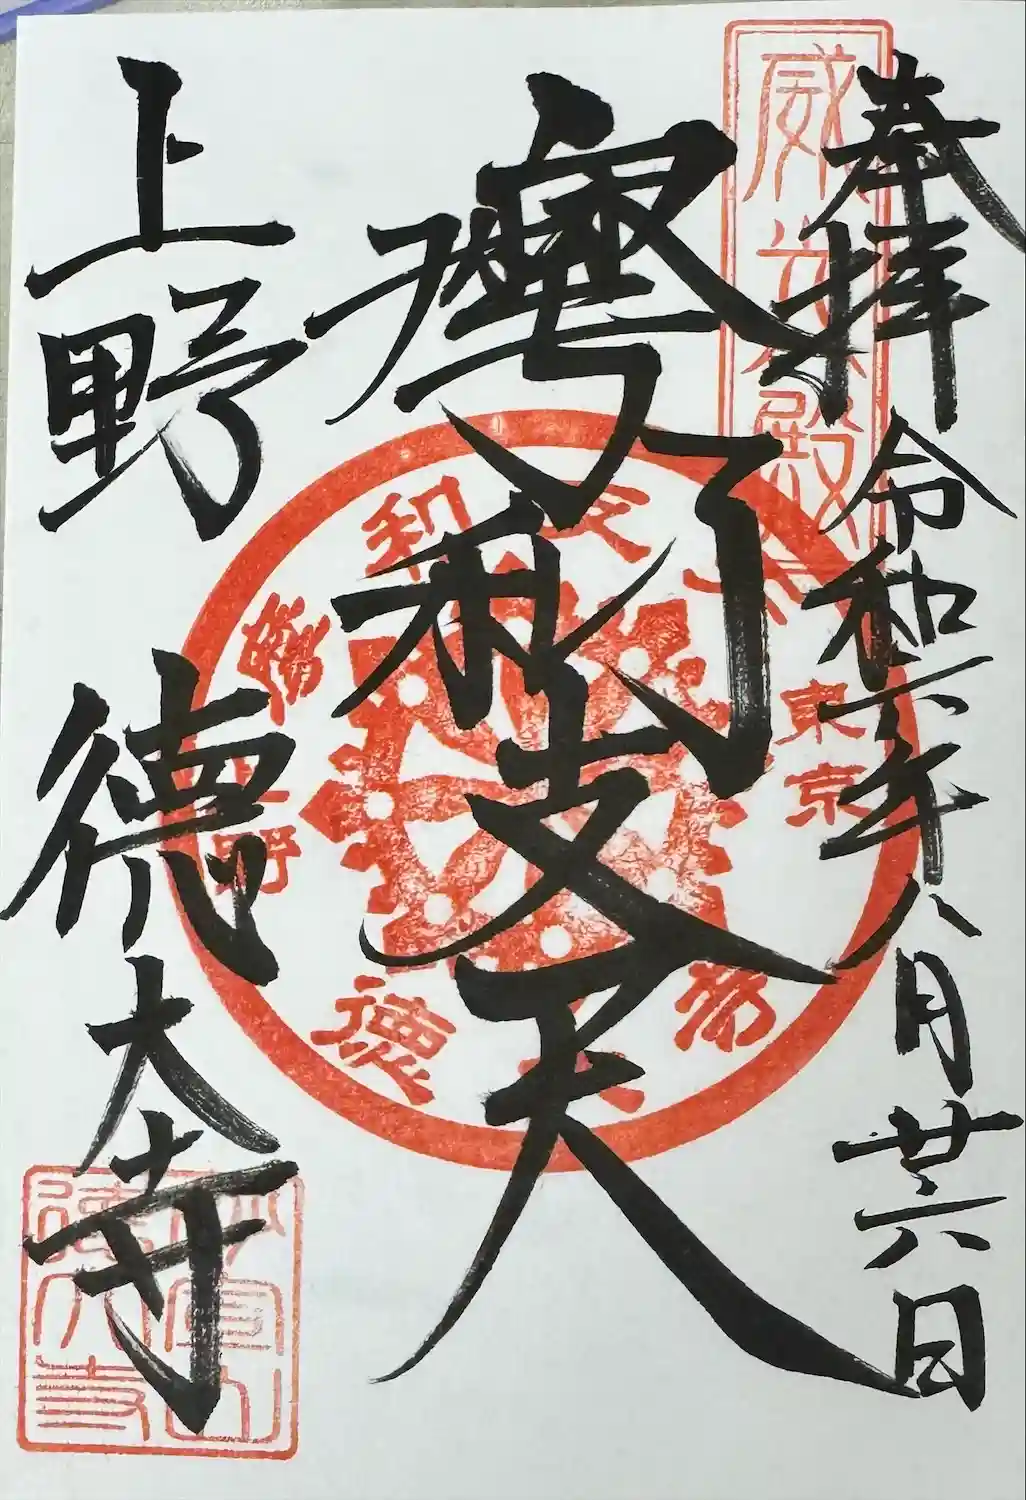 奉拝 令和六年八月廿六日
摩利支天
上野 徳大寺
威光殿
東京
上野
徳大寺